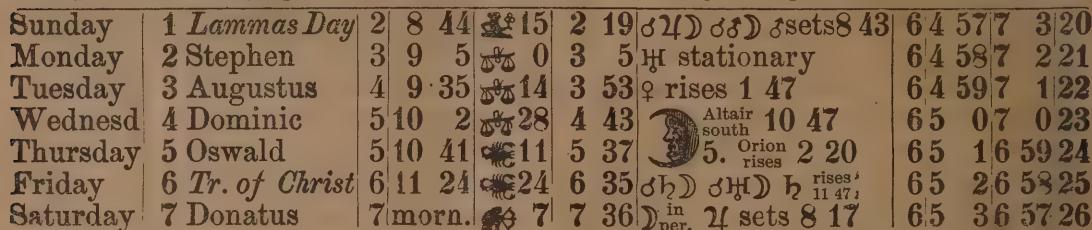 Sunday 1 Lammas Day 2 8 44 15 2 19 ☌♃☽ ☌♂☽ ♂sets 8 43 6 4 57 7 3 20
Monday 2 Stephen 3 9 5 0 3 5 ♅ stationary 6 4 58 7 2 21
Tuesday 3 Augustus 4 9 35 14 3 53 ♀ rises 1 47 6 4 59 7 1 22
Wednesd 4 Dominic 5 10 2 28 4 43 Altair south 10 47 6 5 0 7 0 23
Thursday 5 Oswald 5 10 41 11 5 37 5. Orion rises 2 20 6 5 1 6 59 24
Friday 6 Tr. of Christ 6 11 24 24 6 35 ☌♄☽ ☌♅☽ ♄ rises 11 47 6 5 2 6 58 25
Saturday 7 Donatus 7 morn. 7 7 36 ☽ in per. ♃ sets 8 17 6 5 3 6 57 26